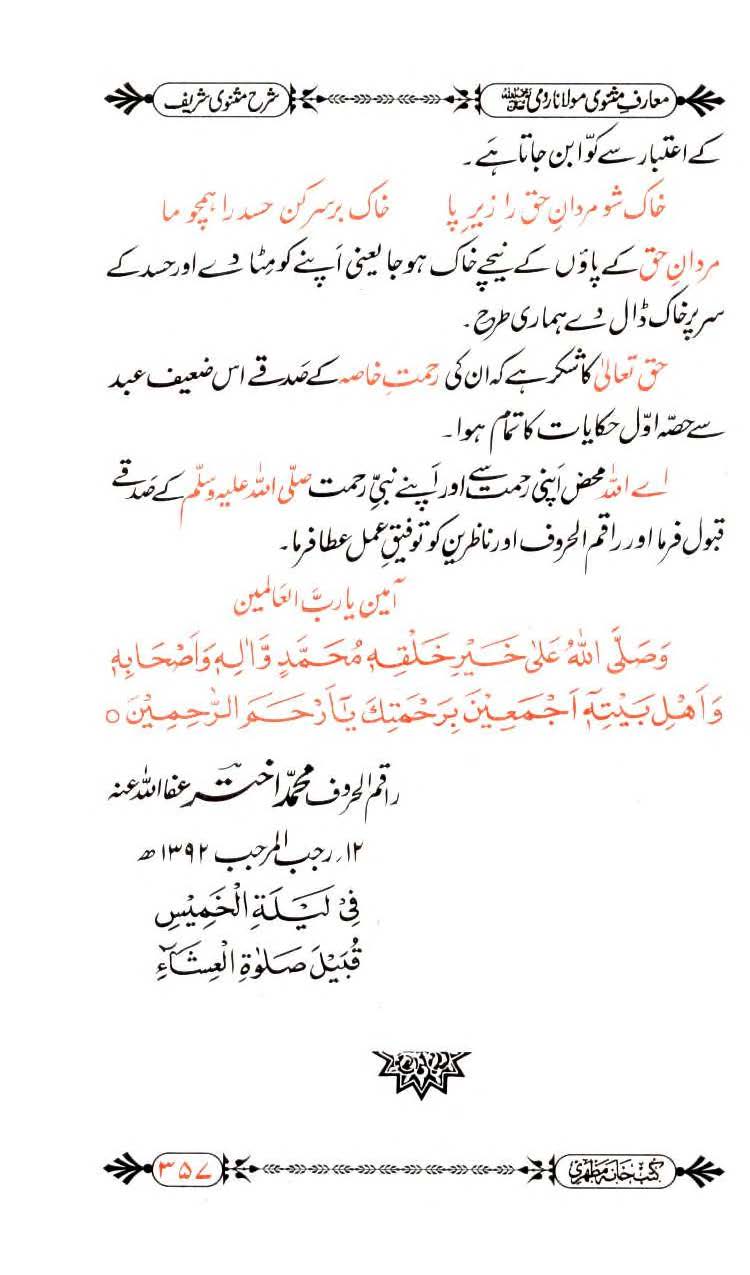 معارفِ مثنوی مولانا رومی رحمۃ اللہ علیہ
شرح مثنوی شریف
کے اعتبار سے کوّا بن جاتا ہے۔
خاک شو مردانِ حق را زیرِ پا خاک بر سر کن حسد را ہمچو ما
مردانِ حق کے پاؤں کے نیچے خاک ہو جا یعنی اَپنے کو مِٹا دے اور حسد کے
سر پر خاک ڈال دے ہماری طرح۔
حق تعالیٰ کا شکر ہے کہ ان کی رحمتِ خاصہ کے صَدقے اس ضعیف عبد
سے حصّہ اوّل حکایات کا تمام ہوا۔
اے اللہ محض اَپنی رحمت سے اور اَپنے نبیِّ رحمت صلّی اللہ علیہ وسلّم کے صَدقے
قبول فرما اور راقم الحروف اور ناظرین کو توفیقِ عمل عطا فرما۔
آمین یا ربَّ العَالمین
وَصَلَّى اللّٰهُ عَلٰى خَيْرِ خَلْقِهٖ مُحَمَّدٍ وَّاٰلِهٖ وَاَصْحَابِهٖ
وَاَهْلِ بَيْتِهٖٓ اَجْمَعِيْنَ بِرَحْمَتِكَ يَآ اَرْحَمَ الرّٰحِمِيْنَ ○
راقم الحروف محمّد اختر عفا اللہ عنہ
۱۲؍ رجب المرجب ۱۳۹۲ھ
فِيْ لَيْلَةِ الْخَمِيْسِ
قُبَيْلَ صَلٰوةِ الْعِشَآءِ
کتب خانہ مظہری
۳۵۷